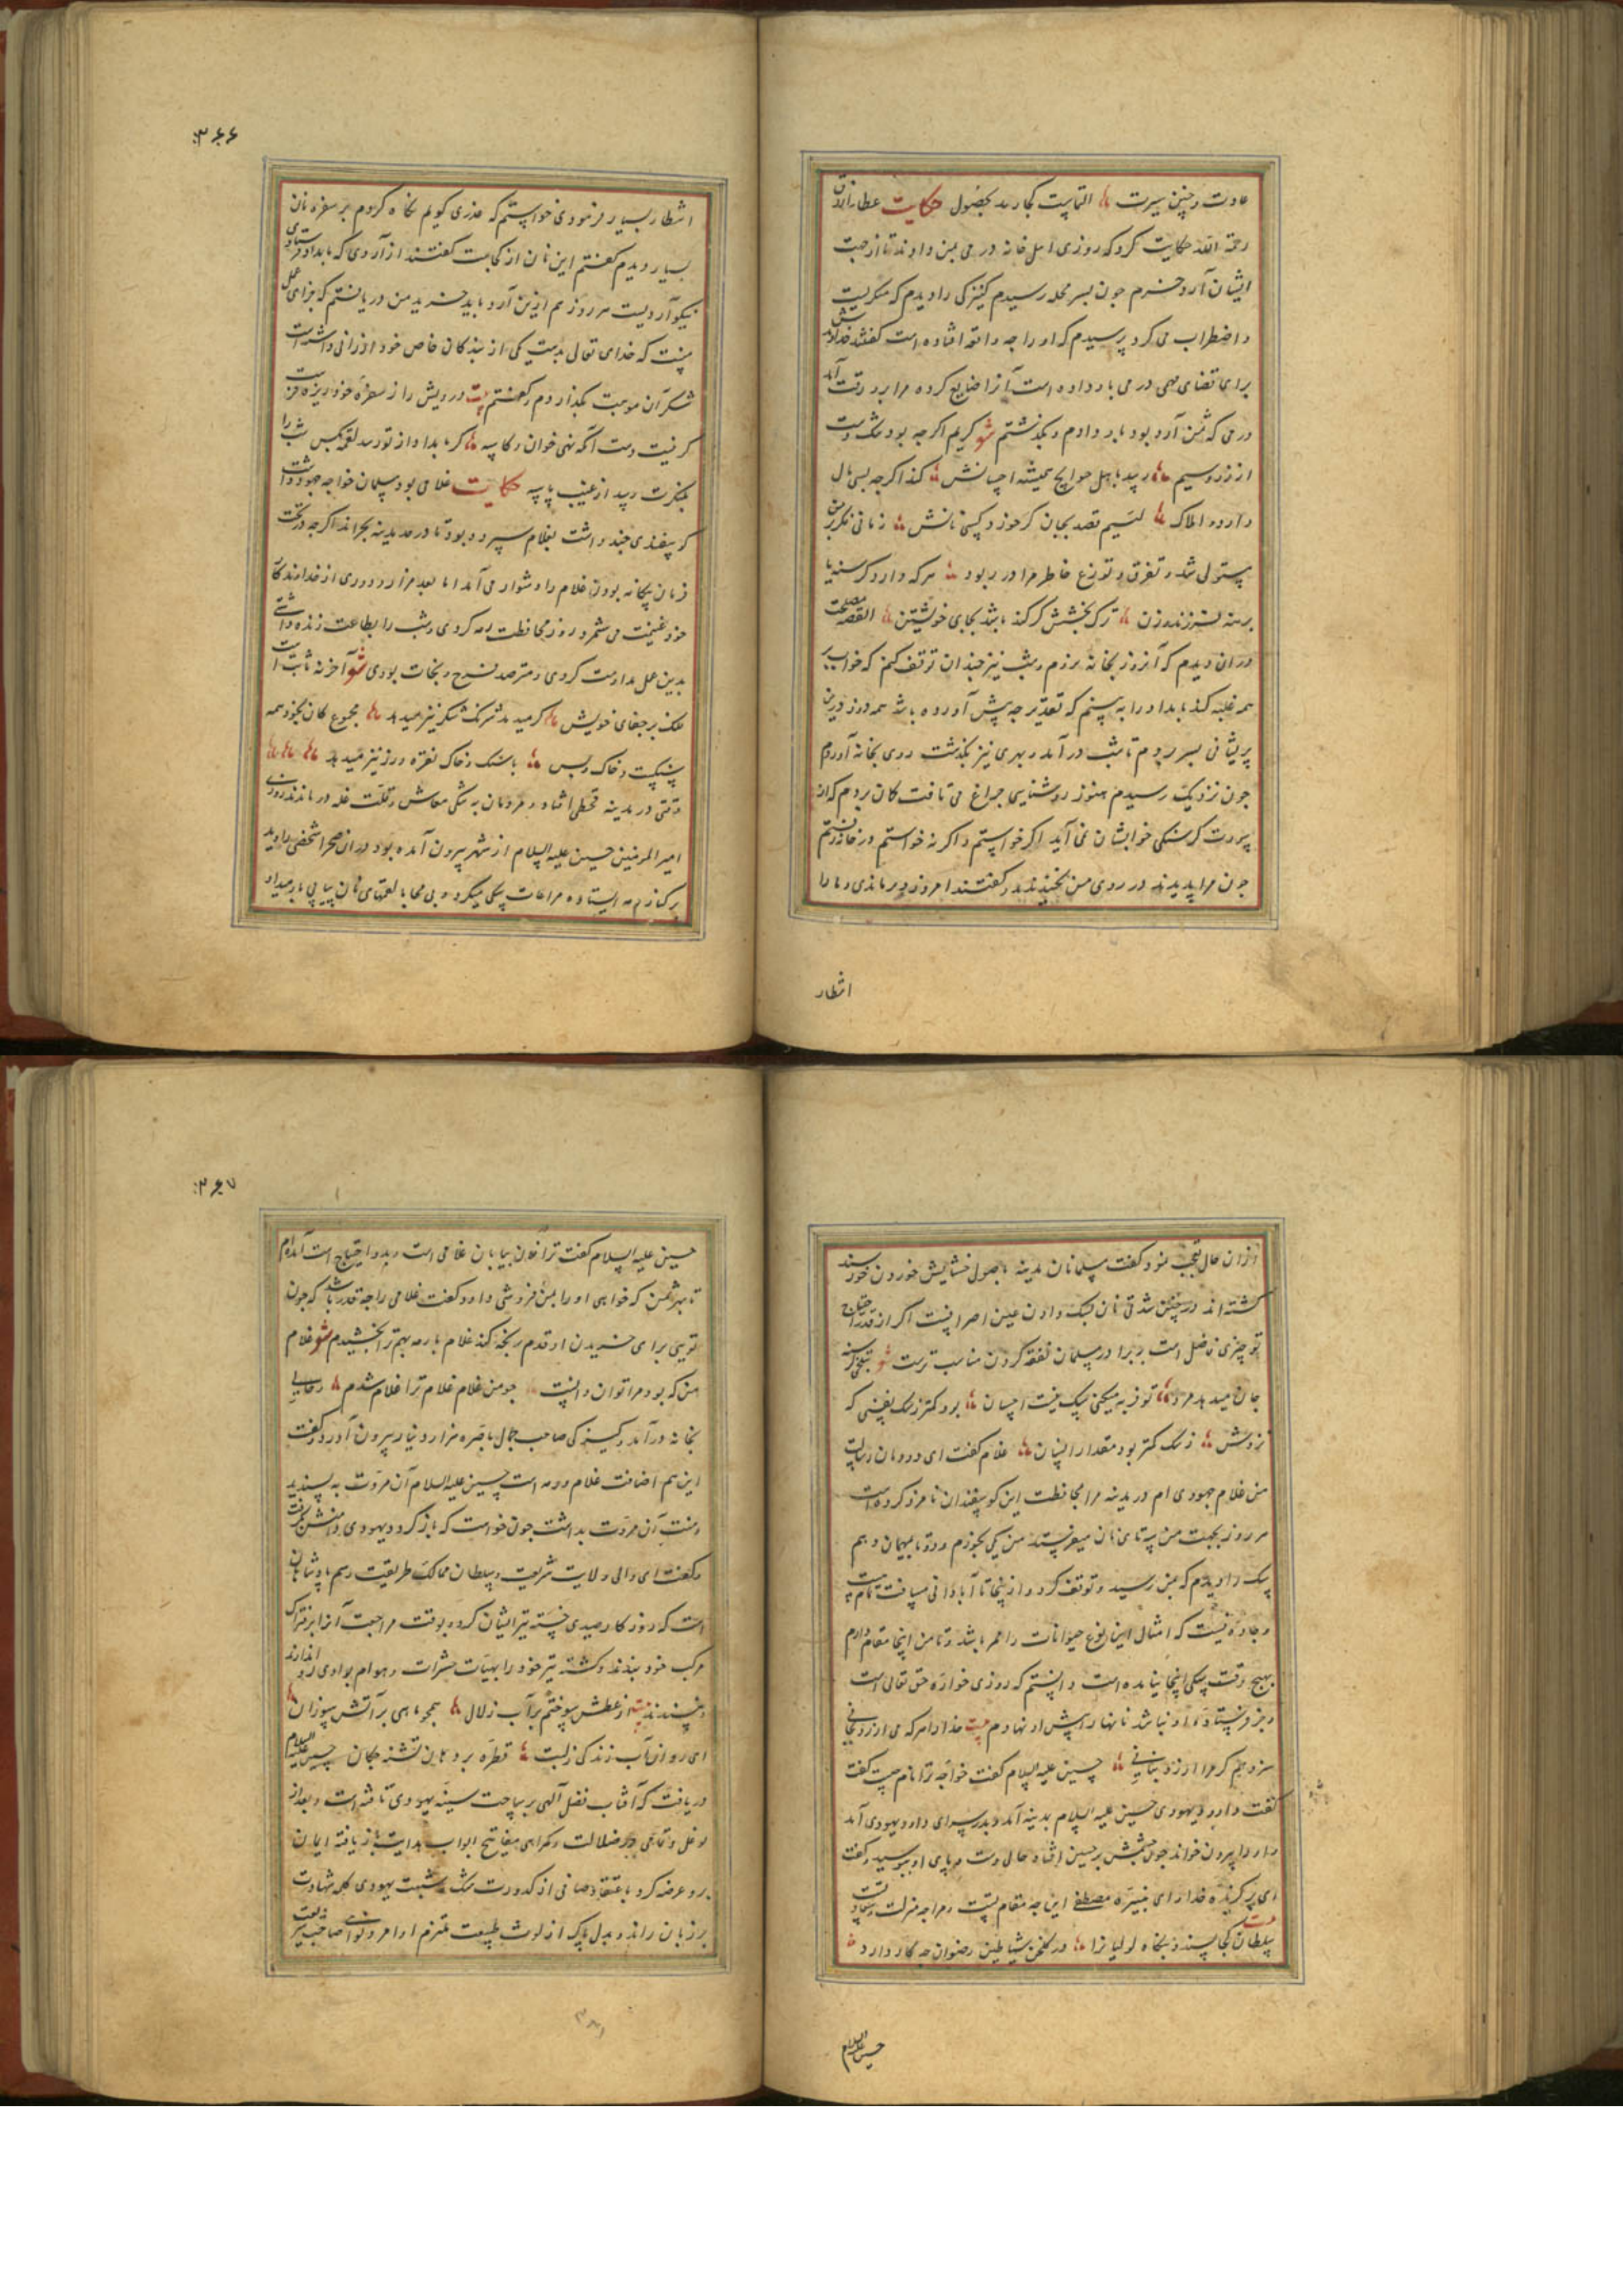 عادت و چنین سیرت التماست کجا رسد بحصول حکایت عطار ازرق
رحمة الله حکایت کرد که روزی اهل خانه درمی بمن دادند تا از جهت
ایشان آرد خرم چون بسر محله رسیدم کنیزکی را دیدم که میگریست
و اضطراب می کرد پرسیدم که او را چه واقعه افتاده است گفتند خداوندش
برای قضای مهمی درمی باو داده است آنرا ضایع کرده مرا برو رقت آمد
درمی که ثمن آرد بود باو دادم و بگذشتم شعر کریم اگر چه بود تنگ دست
از زر و سیم رسد باهل حوایج همیشه احسانش کذا اگر چه بسی مال
دارد و املاک لئیم قصد بجان کرد خود و کسی نانش زمانی فکر بر من
مستولی شد و تفرق و توزع خاطر مرا در ربود هر که دارد گرسنه یا
برهنه فرزند و زن ترک بخشش گر کند باشد بجای خویشتن القصه مصلحت
در ان دیدم که آنروز بخانه نروم و شب نیز چندان توقف کنم که خواب بر
همه غلبه کند بامداد را ببینم که تقدیر چه پیش آورده باشد همه روز درین
پریشانی بسر بردم تا شب در آمد و بهری نیز بگذشت روی بخانه آوردم
چون نزدیک رسیدم هنوز روشنایی چراغ می تافت گمان بردم که از
سورت گرسنگی خوابشان نمی آید اگر خواستم و اگر نه خواستم در خانه رفتم
چون مرا بدیدند در روی من بخندیدند و گفتند امروز دیر ماندی و ما را
انتظار
۳۶۶
انتظار بسیار فرمودی خواستم که عذری گویم نگاه کردم بر سفره نان
بسیار دیدم گفتم این نان از کجاست گفتند از آردی که بامداد فرستادی
نیکو آردیست هر روز هم ازین آرد باید خرید من دریافتم که جزای عمل
منست که خدای تعالی بدست یکی از بندکان خاص خود ارزانی داشته است
شکر آن موهبت بگذاردم و گفتم بیت درویش را ز سفره خود ریزه فرست
کر نیست دست آنکه نهی خوان و کاسه گر بامداد از تو رسد لقمه بکس شب را
حکایت غلامی بود مسلمان خواجه جهود داشت
گوسفندی چند داشت بغلام سپرده بود تا در حد مدینه بچراند اگر چه در تحت
فرمان بیگانه بودن غلام را دشوار می آمد اما بعد مزار و دوری از خداوندگار
خود غنیمت می شمرد روز محافظت رمه کردی و شب را بطاعت زنده داشتی
بدین عمل مداومت کردی و مترصد فرح و نجات بودی شعر آخر نه ثابت است
ملک بر جفای خویش کر میدهد شرنگ شکر نیز میدهد مجموع کان نخود همه
سنگست و خاک و بس با سنگ و خاک نقره و زر نیز میدهد
وقتی در مدینه قحطی افتاد و مردمان به تنگی معاش و قلت غله در ماندند روزی
امیر المومنین حسین علیه السلام از شهر بیرون آمده بود در ان صحرا شخصی را دید
بر کنار رمه ایستاده مراعات سگی میکرد و بی محابا لقمهای نان پیاپی باو میداد
از ان حال تعجب نمود گفت مسلمانان مدینه باصول خشایش خوردن خورسند
گشته اند در چنین شدتی نان بسگ دادن عین اصرافست اگر از قدر احتیاج
تو چیزی فاضل است بر برادر مسلمان نفقه کردن مناسب ترست شعر
جان میدهد مرد تو فربه میکنی سگ نیست احسان بود کمتر ز سگ یعنی که
نزدش ز سگ کمتر بود مقدار انسان غلام گفت ای دودمان رسالت
من غلام جهودی ام در مدینه مرا بمحافظت این گوسفندان نامزد کرده است
هر روز بجهت من سه تا نان میفرستد من یکی بخورم و دو تا بمهمان دهم
سگ را دیدم که بمن رسید و توقف کرد و از ینجا تا آبادانی مسافت تمام است
و جاده نیست که امثال این نوع حیوانات را ممر باشد و تا من اینجا مقام دارم
بهیچ وقت سگی اینجا نیامده است دانستم که روزی خواره حق تعالی است
و جز فرستاده او نباشد نانها را پیش او نهادم بیت خدا را هر که می ارزد بجانی
سزد هم گر مرا ارزد بنانی حسین علیه السلام گفت خواجه ترا نام چیست گفت
گفت داود یهودی حسین علیه السلام بمدینه آمد و بدر سرای داود یهودی آمد
داود را بیرون خواند چون چشمش بر حسین افتاد حالی دست و پای او ببوسید و گفت
ای برگزیده خدا و ای نبیره مصطفی این چه مقام تست و مرا چه منزلت و سعادت
بیت سلطان کجا پسندد بنگاه لولیانرا در گلخن شیاطین رضوان چه کار دارد
حسین علیه السلام
۳۶۷
حسین علیه السلام گفت ترا فلان بیابان غلامی است و بدو احتیاج است آمده ام
تا بهر ثمن که خواهی او را بمن فروشی داود گفت غلامی را چه قدر باشد که چون
تویی برای خریدن او قدم رنجه کند غلام با رمه بهم ترا بخشیدم شعر غلام
من که بود مرا توان دانست چو من غلام غلام ترا غلام شدم و حالی
بخانه در آمد و کنیزکی صاحب جمال با صره هزار دینار بیرون آورد و گفت
این هم اضافت غلام و رمه است حسین علیه السلام آن مروت به پسندید
و منت آن مروت بداشت چون خواست که باز گردد یهودی دامنش گرفت
و گفت ای والی ولایت شریعت و سلطان ممالک طریقت رسم پادشاهان
است که روز کار صیدی خسته تیر ایشان کرده بوقت مراجعت آنرا بر فتراک
مرکب خود ببندند و کشته تیر خود را بهیات حشرات و هوام بوادی رد اندازند
و نپسندند بیت از عطش سوختم بر آب زلال همچو ماهی بر آتش سوزان
ای روان آب زندگی ز لبت قطره بر دهان تشنه چکان حسین علیه السلام
دریافت که آفتاب فضل الهی بر ساحت سینه یهودی تافته است و بعد از
توغل و تمادی در ضلالت و گمراهی مفاتیح ابواب هدایت باز یافته ایمان
برو عرضه کرد باعتقاد صافی از کدورت شک و شبهت یهودی کلمه شهادت
بر زبان راند و بدل پاک از لوث طبیعت ملتزم اوامر و نواهی صاحب شریعت
۳۸۱